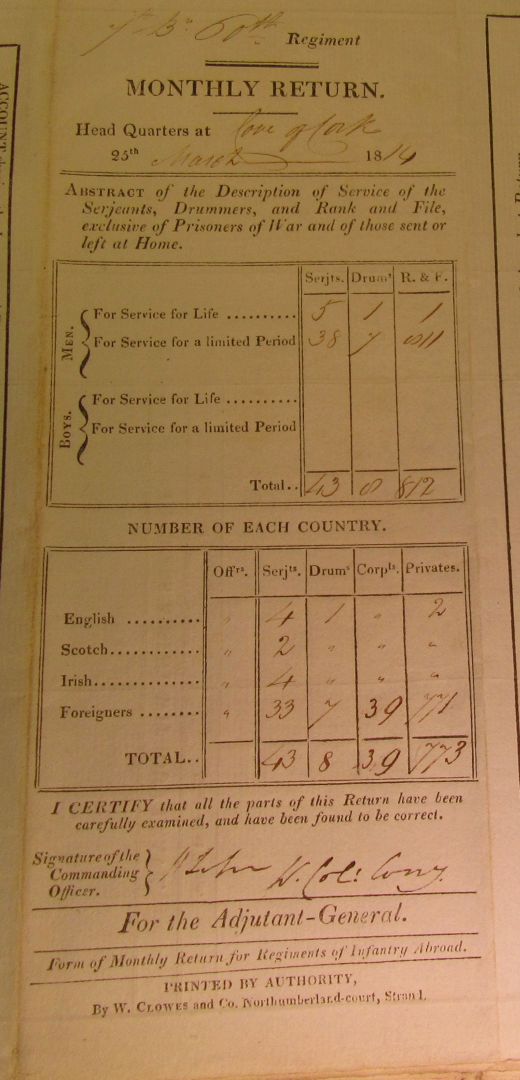 7th Bn 60th Regiment
MONTHLY RETURN.
Head Quarters at Cove of Cork
25th March 1814
ABSTRACT of the Description of Service of the
Serjeants, Drummers, and Rank and File,
exclusive of Prisoners of War and of those sent or
left at Home.
Serjts. Drumrs R. & F.
MEN.
For Service for Life .......... 5 1 1
For Service for a limited Period 38 7 811
BOYS.
For Service for Life ..........
For Service for a limited Period
Total.. 43 8 812
NUMBER OF EACH COUNTRY.
Offrs. Serjts. Drums Corpls. Privates.
English .......... " 4 1 " 2
Scotch............ " 2 " " "
Irish.............. " 4 " " "
Foreigners ........ " 33 7 39 771
TOTAL.. 43 8 39 773
I CERTIFY that all the parts of this Return have been
carefully examined, and have been found to be correct.
Signature of the
Commanding
Officer.
Lt. Col: Comg.
For the Adjutant-General.
Form of Monthly Return for Regiments of Infantry Abroad.
PRINTED BY AUTHORITY,
By W. CLOWES and Co. Northumberland-court, Strand.
ACCOUNT